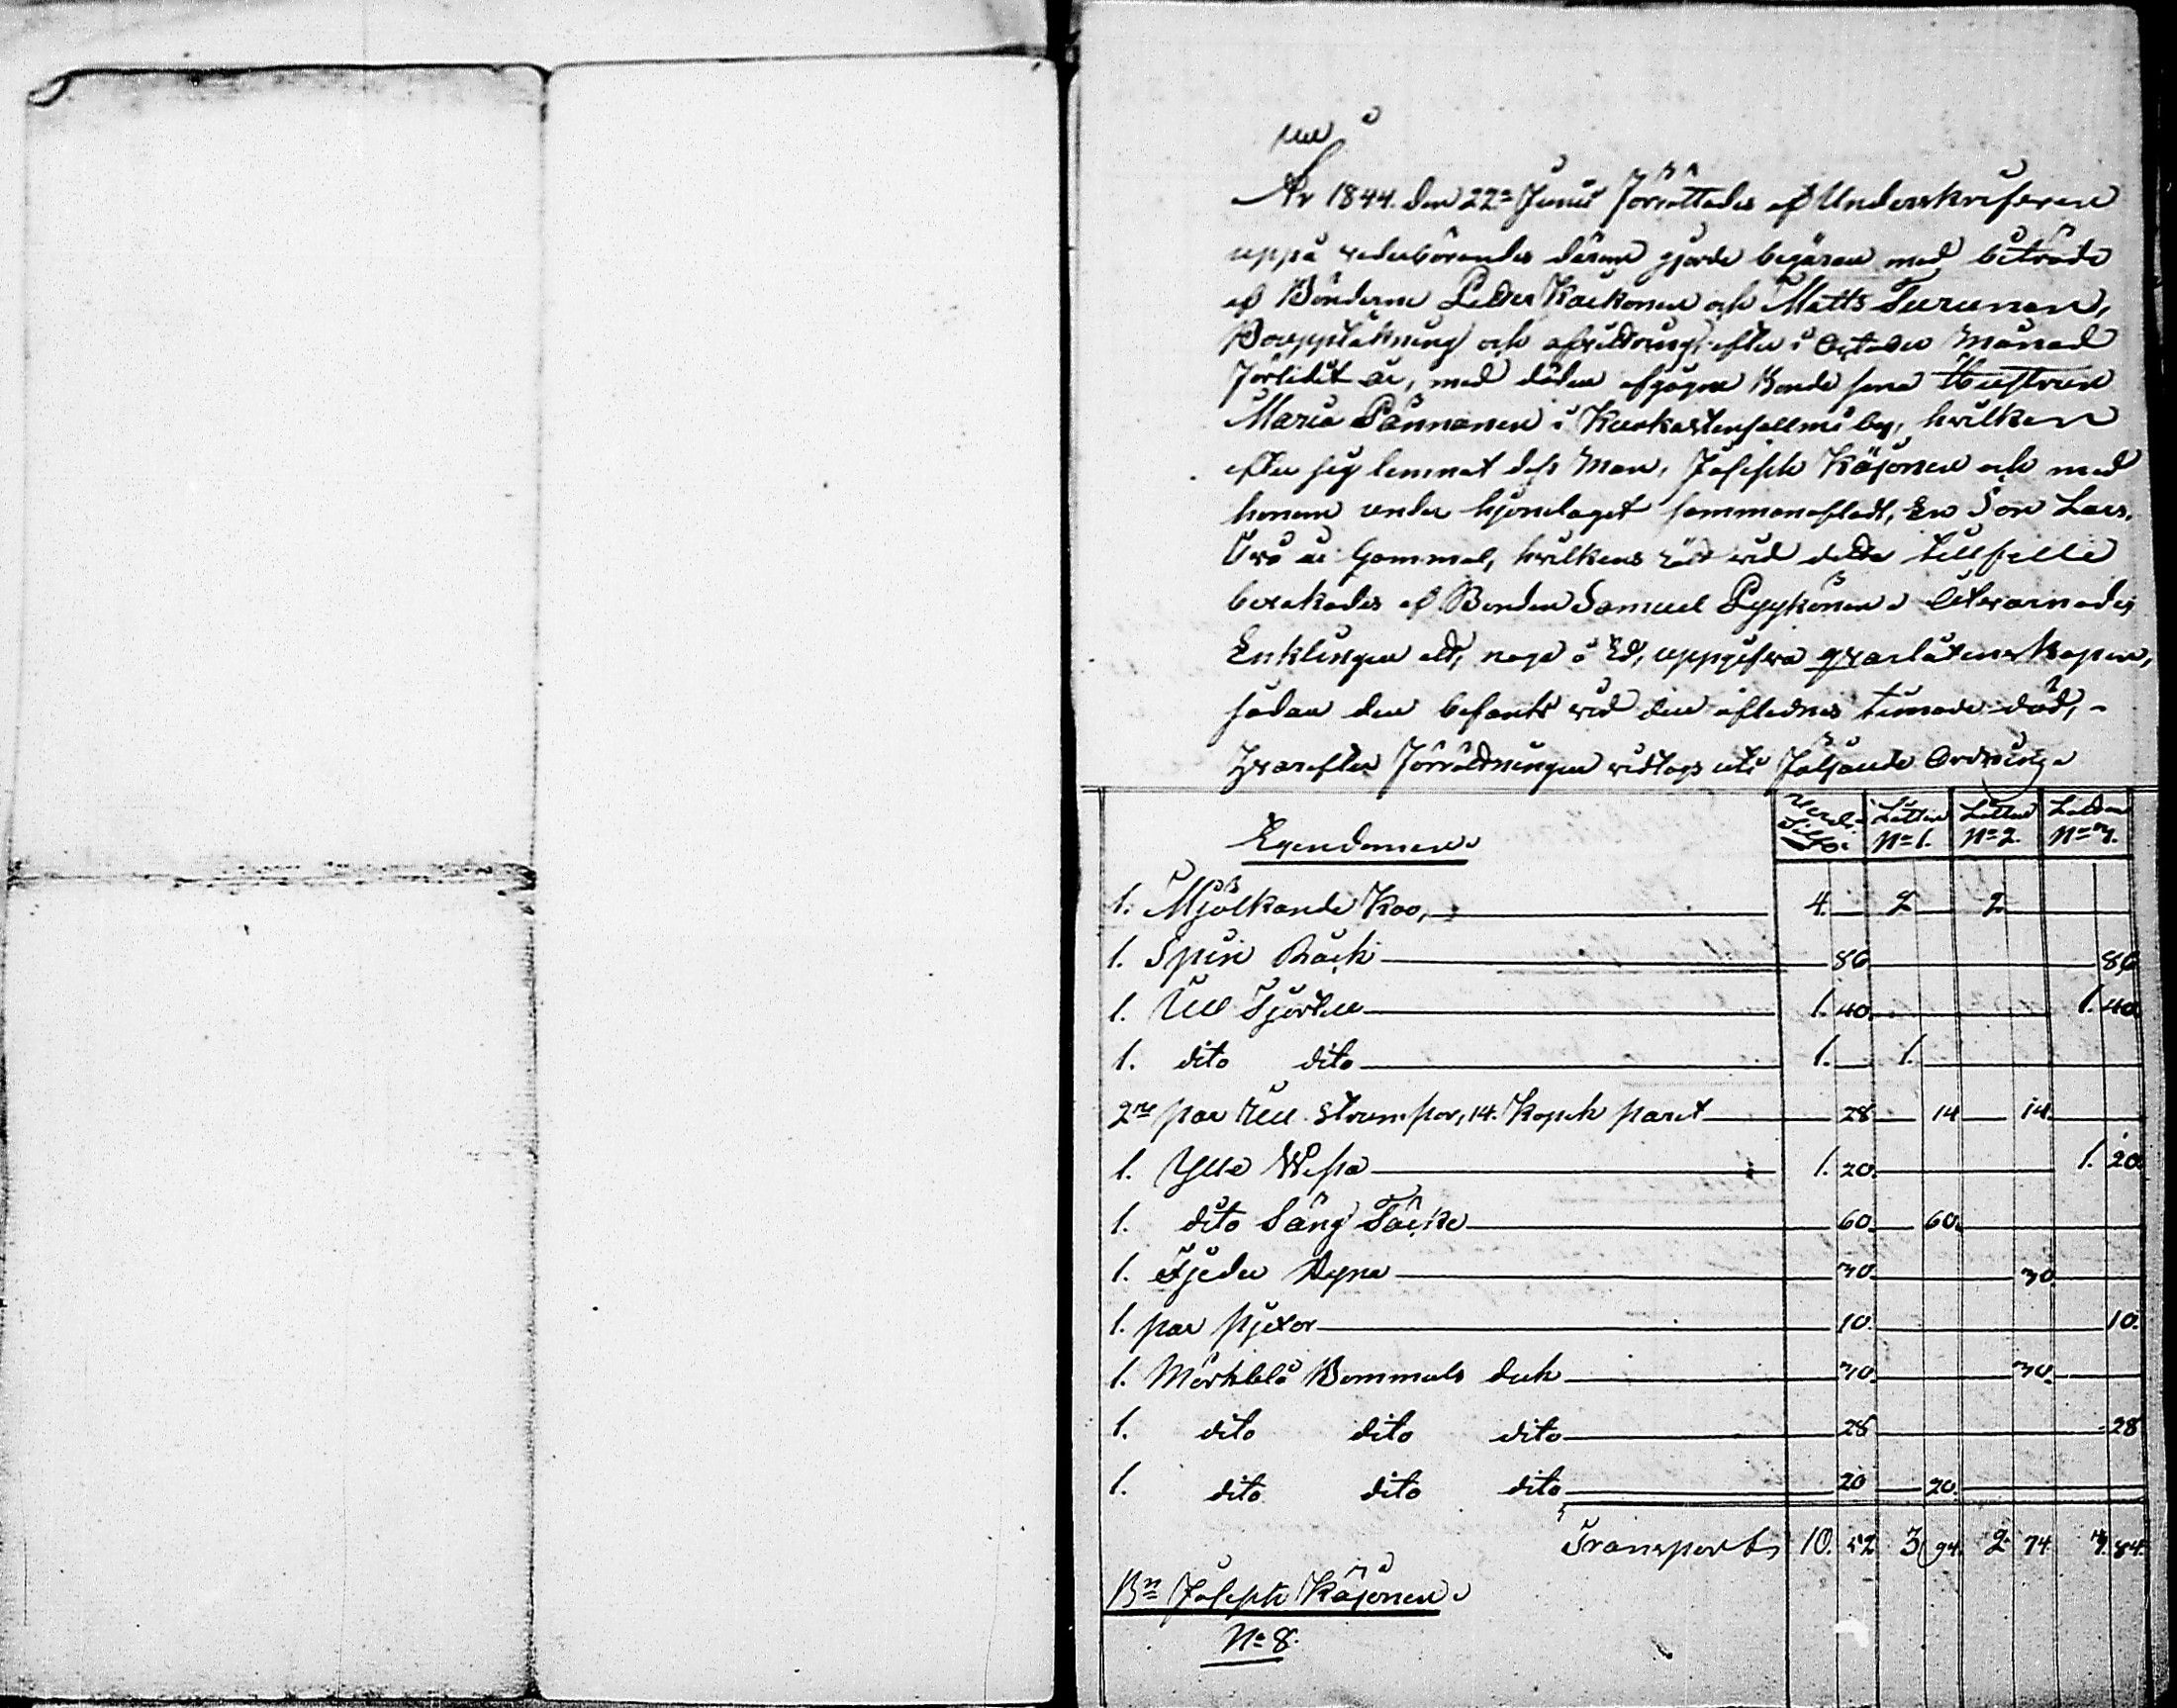 År 1844. den 22a Junii förrättades af Underskrifven
uppå vederbörandes därom gjorde begäran med biträde
af Bönderne Petter Kaikonen och Matts Turunen,
Bouppteckning och afvittring, efter i October Månad
förledit år, med döden afgågne Bonde sona Hustrun
Maria Pännänen i Kurkastensallmi by, hvilken
efter sig lemnat dess Man, Joseph Käjonen och med
honom under hjonelaget sammanaflad, En Son Lars,
Två år Gammal, hvilkens rätt vid detta tillfelle
bevakades af Bonden Samuel Pyykönen. Åtvarnades
Enklingen att, noga å Ed, uppgifva qvarlåtenskapen,
sådan den befants vid den aflednes timade död,
hvarefter förrättningen vidtogs uti följande Ordning.
Egendomen. Lotten No 1. Lotten No 2. Lotten No 3.
1. Mjölkande Koo, 4. 2 2
1. Spin Råck 86 86
1. Ull Tjortel 1. 40. 1. 40
1. dito dito 1. 1.
2ne par Ull Strumpor, 14. Kopek paret 28 14 14
1. Ylle Wepa 1. 20. 1. 20
1. dito Säng Täcke 60 60.
1. Fjeder Dyna 30 30
1. par pjexor 10 10.
1. Mörkblå Bommuls duk 30 30.
1. dito dito dito 28 28
1. dito dito dito 20 20.
Transport, 10. 52 3 94. 2 74. 3. 84.
Bn Joseph Käjonen
No 8.